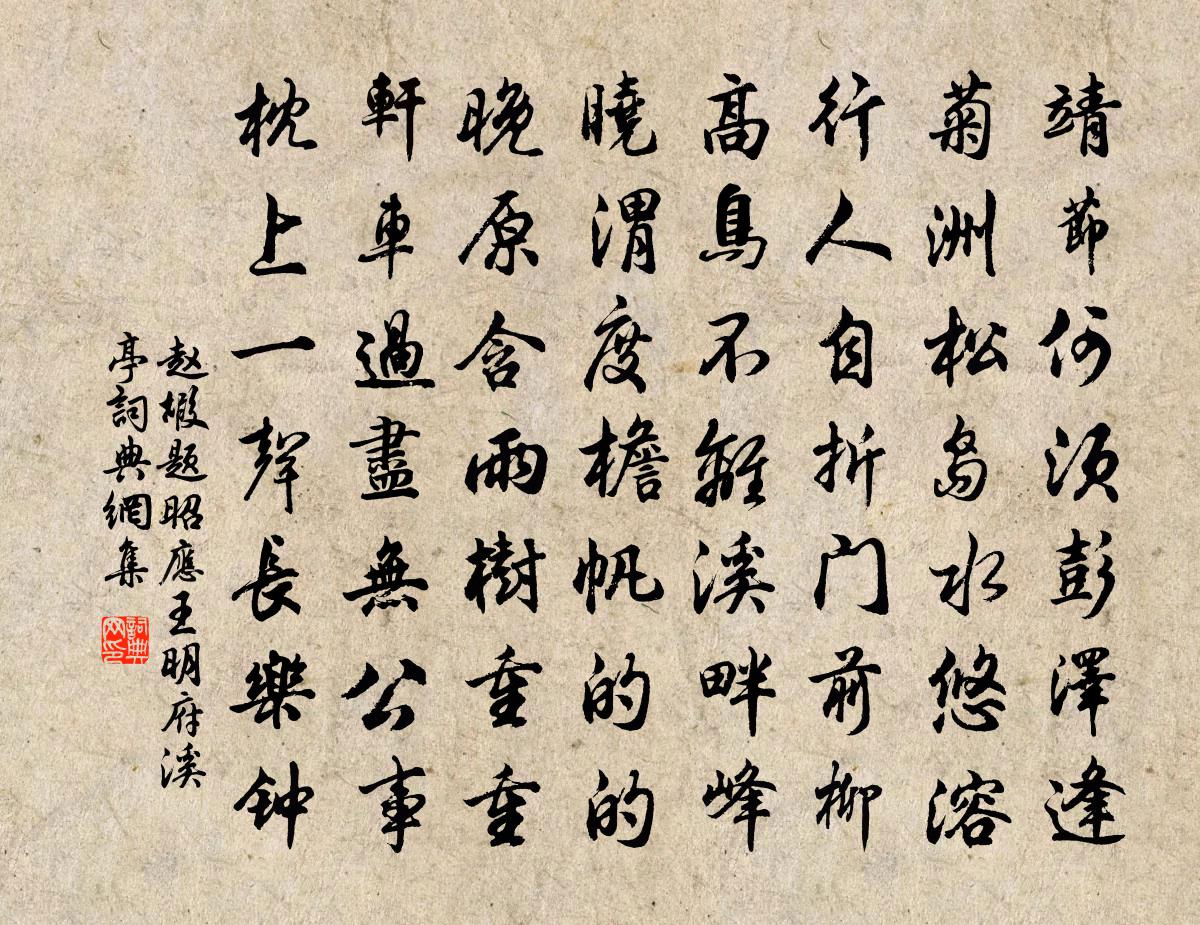 靖節何須彭澤逢
菊洲松島水悠溶
行人自折门前柳
高鳥不離溪畔峰
曉渭度檐帆的的
晚原含雨樹重重
軒車過盡無公事
枕上一聲長樂钟
赵嘏题昭應王明府溪
亭詞典網集
詞典网印